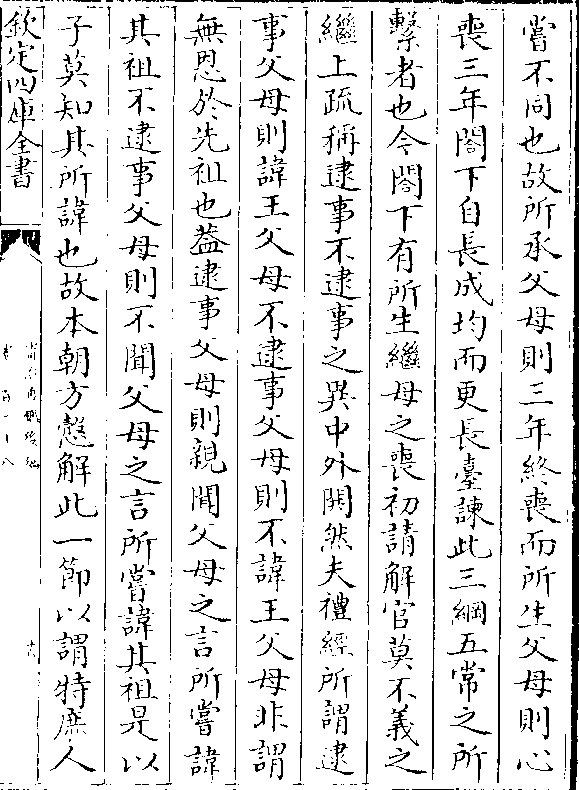 嘗不同也故所承父母則三年終喪而所生父母則心
喪三年閤下自長成均而更長臺諫此三綱五常之所
繫者也今閤下有所生繼母之喪初請解官莫不義之
繼上疏稱逮事不逮事之異中外闃然夫禮經所謂逮
事父母則諱王父母不逮事父母則不諱王父母非謂
無恩於先祖也葢逮事父母則親聞父母之言所嘗諱
其祖不逮事父母則不聞父母之言所嘗諱其祖是以
子莫知其所諱也故本朝方慤解此一節以謂特庶人
欽定四庫全書